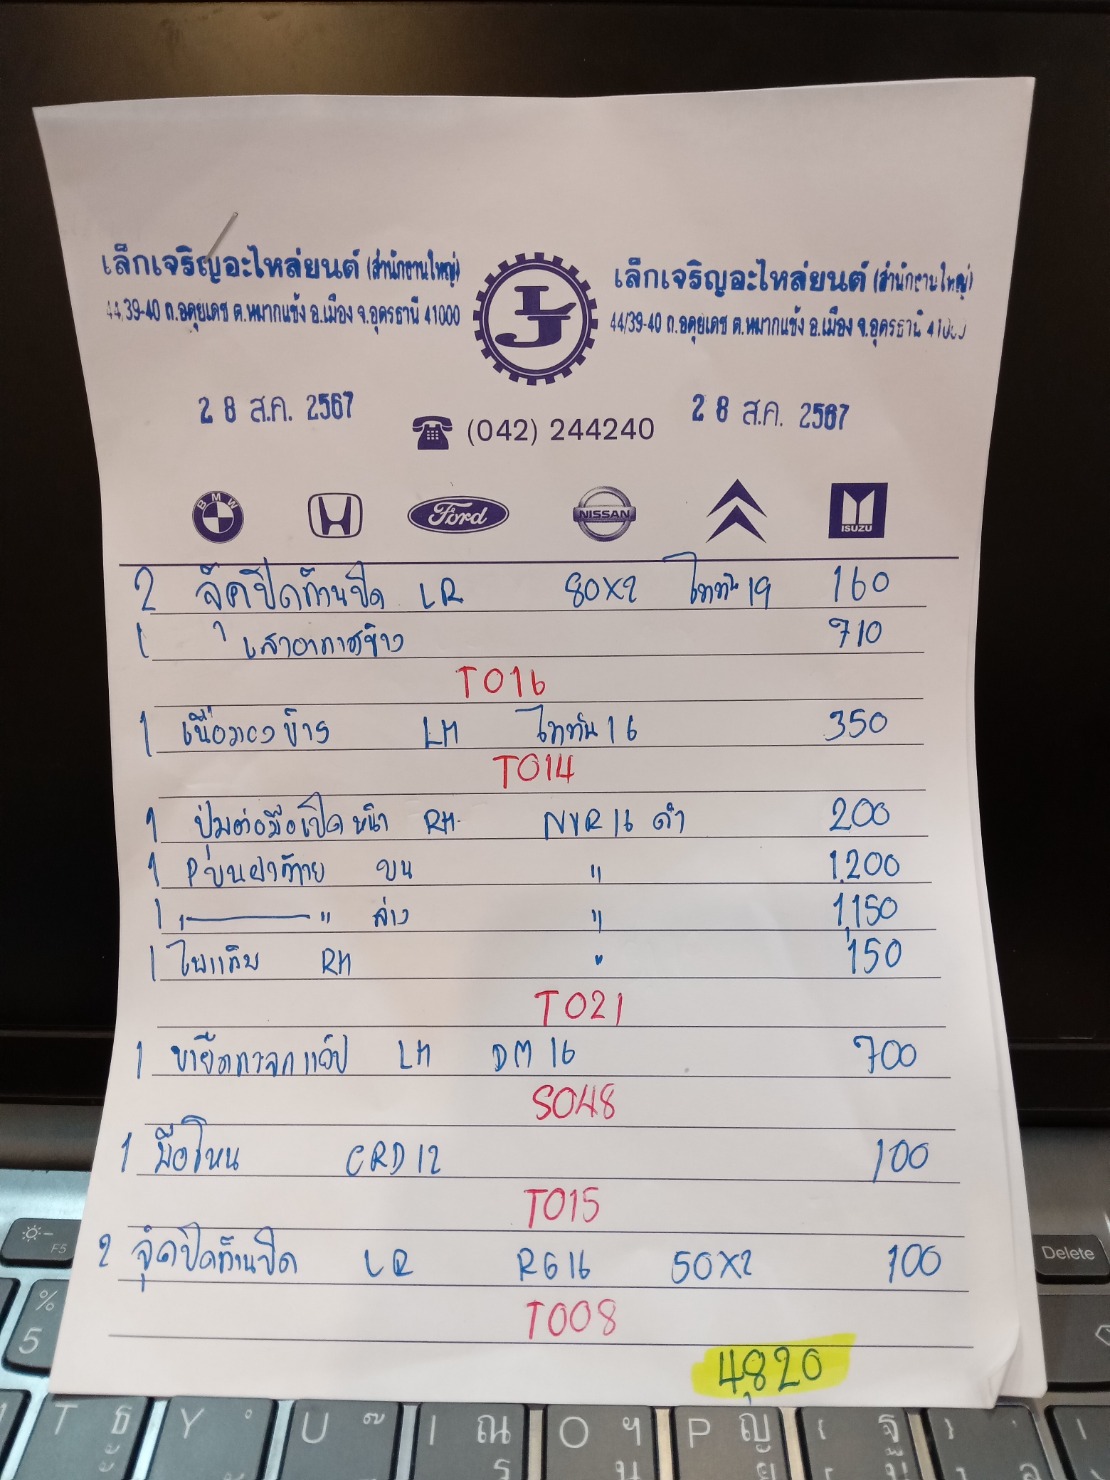 เล็กเจริญอะไหล่ยนต์ (สำนักงานใหญ่)
44/39-40 ถ.อดุยเดช ต.หมากแข้ง อ.เมือง จ.อุดรธานี 41000
LJ
เล็กเจริญอะไหล่ยนต์ (สำนักงานใหญ่)
44/39-40 ถ.อดุยเดช ต.หมากแข้ง อ.เมือง จ.อุดรธานี 41000
28 ส.ค. 2567
(042) 244240
28 ส.ค. 2567
BMW
Ford
NISSAN
ISUZU
2 จุ๊คปิดก้านปัด LR 80X2 ไททัน 19 160
1 เสาอากาศข้าง 710
T016
1 ข้าง LH ไททัน 16 350
T014
1 มือเปิดหน้า RH NVR 16 ดำ 200
1 ฝาท้าย บน " 1,200
1 " ล่าง " 1,150
1 ไฟแก้ม RH " 150
T021
1 ขายึด LH DM 16 700
S048
1 มือโหน CRD 12 100
T015
2 จุ๊คปิดก้านปัด LR RG 16 50X2 100
T008
4,820
F5
Delete
%
5
T ธ
Y
U
I ณ ร
O ฯ น
P ญ ย
ฐ บ